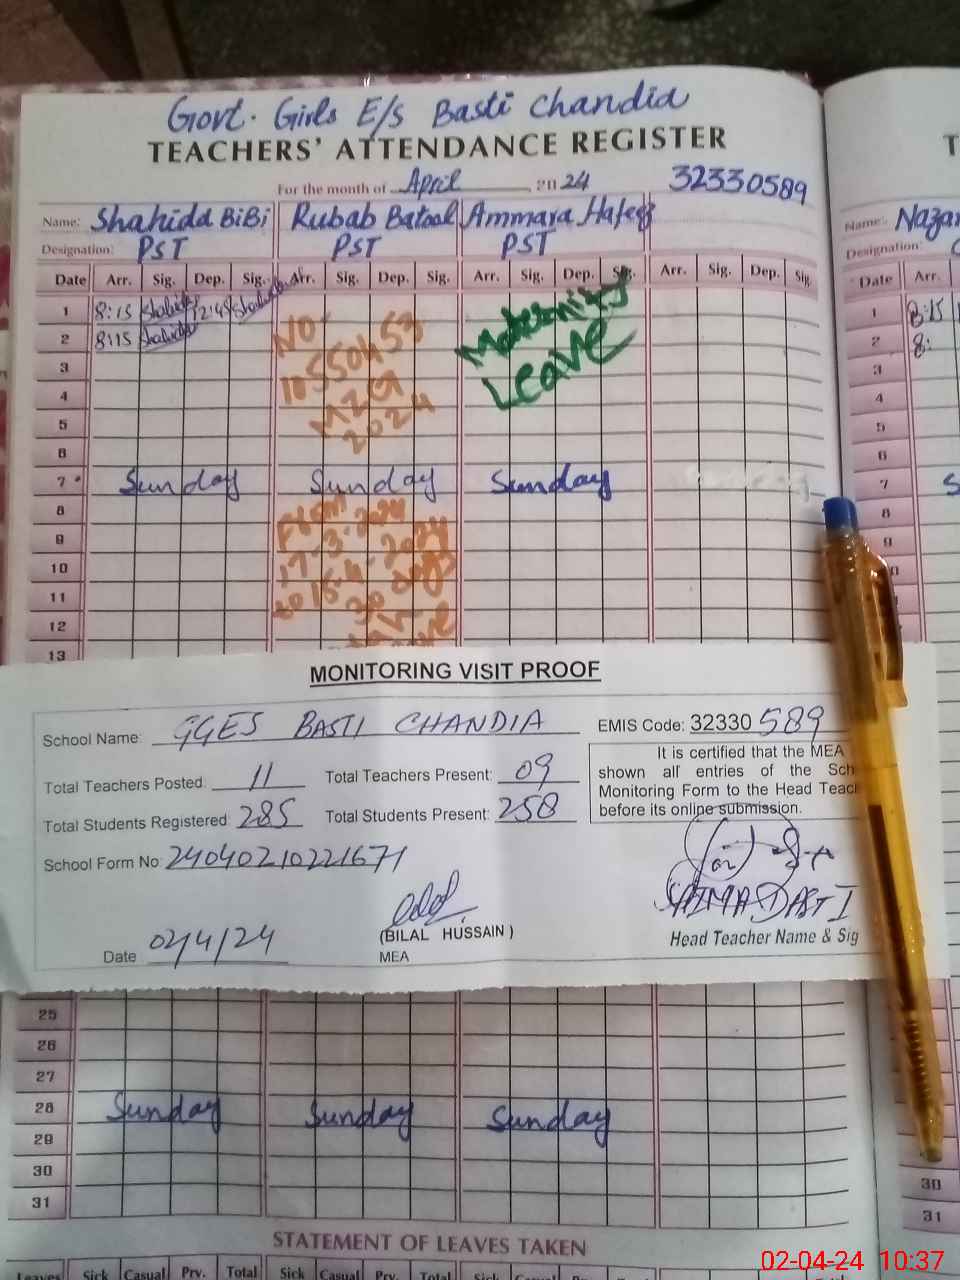 Govt. Girls E/S Basti Chandia
TEACHERS' ATTENDANCE REGISTER
For the month of April 2024 32330589
Name: Shahida BiBi Rubab Batool Ammara Hafeez
Designation: PST PST PST
Date Arr. Sig. Dep. Sig. Arr. Sig. Dep. Sig. Arr. Sig. Dep. Sig. Arr. Sig. Dep. Sig
1 8:15 Shahida 12:45 Shahida
2 8:15 Shahida
NO-
10550453
MZG
2024
Maternity
Leave
3
4
5
6
7 Sunday Sunday Sunday
8
9
10
11
12
13
From
17-3-2024
to 15-4-2024
30 days
MONITORING VISIT PROOF
School Name: GGES BASTI CHANDIA EMIS Code: 32330 589
Total Teachers Posted: 11 Total Teachers Present: 09
Total Students Registered: 285 Total Students Present: 258
School Form No: 24040210221671
It is certified that the MEA
shown all entries of the Sch
Monitoring Form to the Head Teac
before its online submission.
SAIMA DASTI
Head Teacher Name & Sig
Date 02/4/24
(BILAL HUSSAIN)
MEA
25
26
27
28 Sunday Sunday Sunday
29
30
31
STATEMENT OF LEAVES TAKEN
Leaves Sick Casual Prv. Total Sick Casual Prv. Total Sick Casual
T
Name: Nazar
Designation:
Date Arr.
1 8:15
2 8:
3
4
5
6
7 S
8
9
30
31
02-04-24 10:37